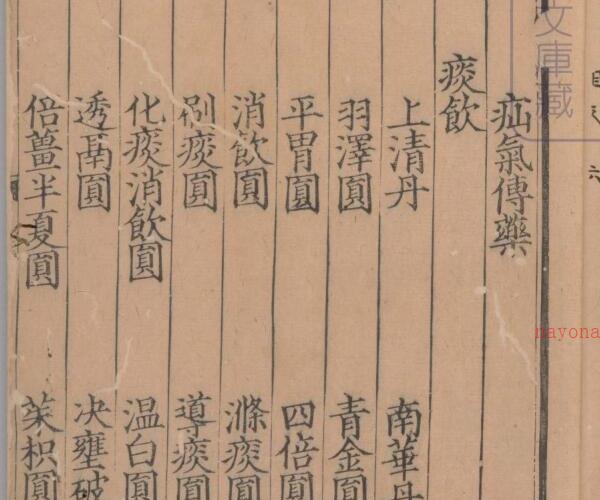 文庫藏
疝氣傳藥
痰飲
上清丹 南華丹
羽澤圓 青金圓
平胃圓 四倍圓
消飲圓 滌痰圓
痰圓 導痰圓
化痰消飲圓 温白圓
透鬲圓 决壅破
倍薑半夏圓 茱枳圓
nayona